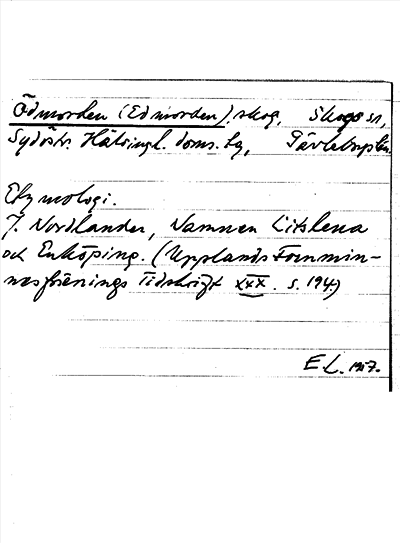 Ödmorden (Edmorden), skog, Skogs sn,
Sydöstr. Hälsingl. doms. lg, Gävleborgs län.
Etymologi.
J. Nordlander, Namnen Litslena
och Enköping. (Upplands Fornmin-
nesförenings Tidskrift XXX. s. 194.)
E. L. 1917.